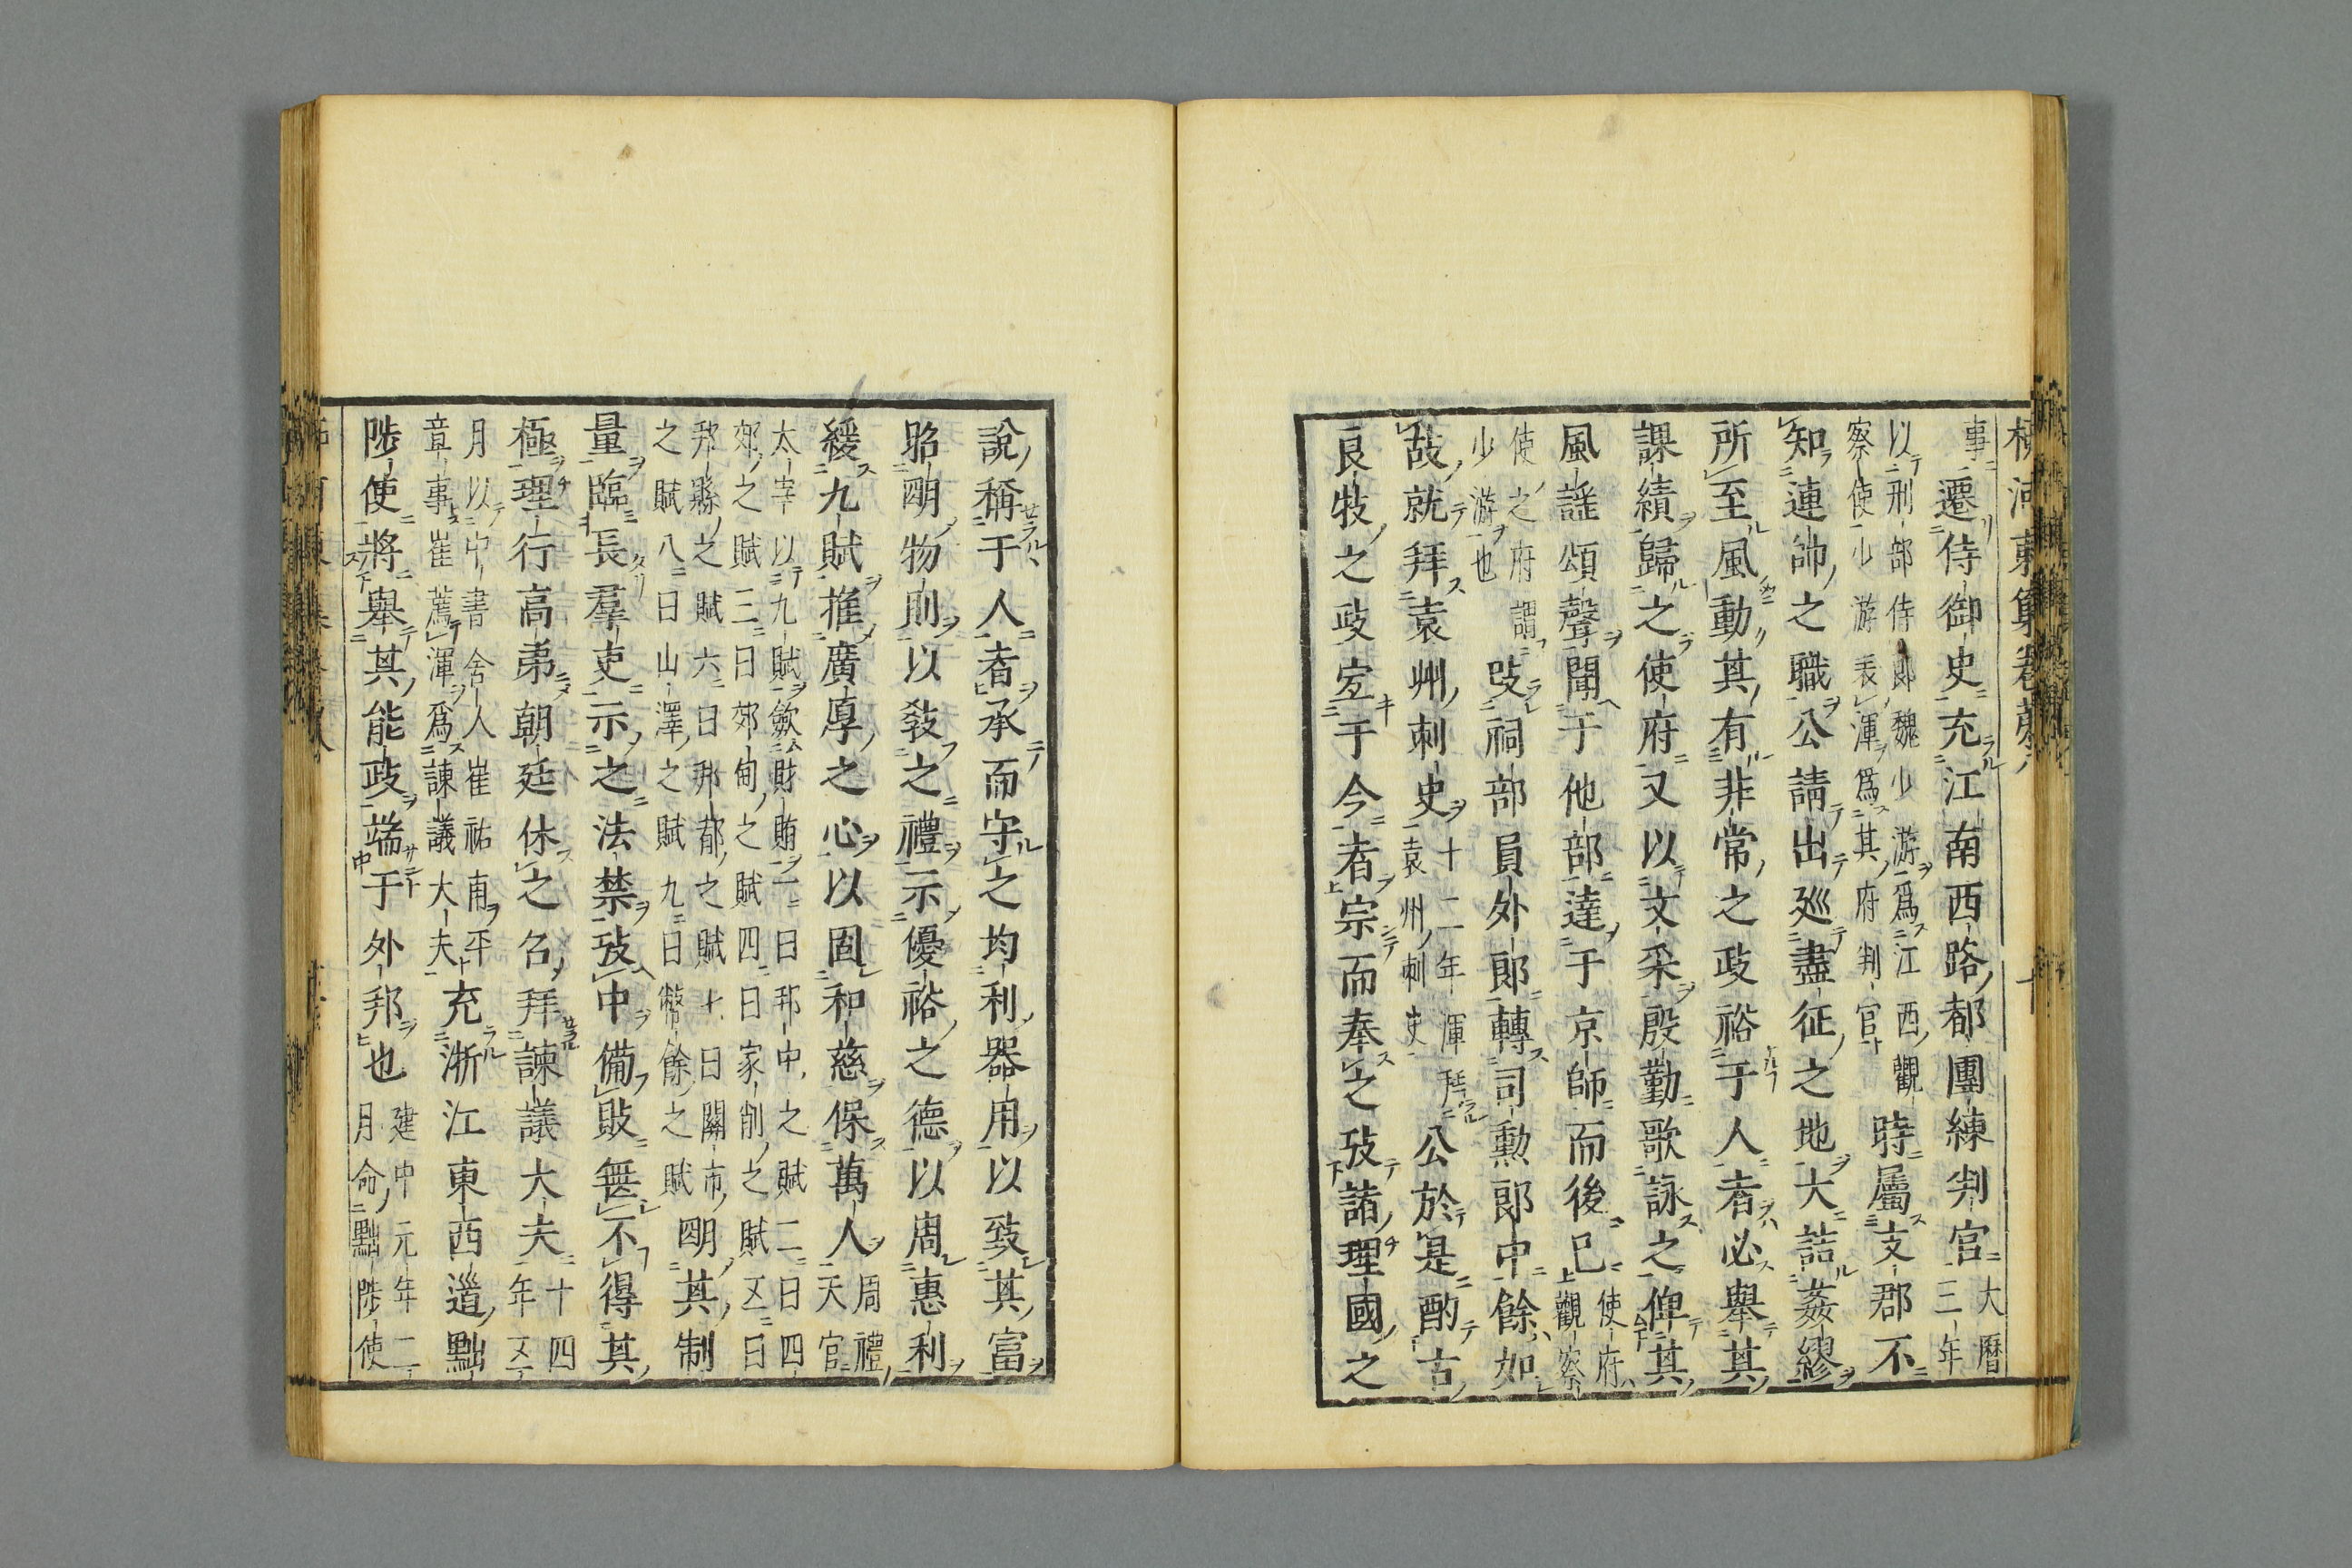 事遷侍御史充江南西路都團練判官大曆三年
以刑部侍郎魏少游爲江西觀
察使少游表渾爲其府判官時屬支郡不
知連帥之職公請出廵盡征之地大詰姦繆
所至風動其有非常之政裕于人者必舉其
課績歸之使府又以文采殷勤歌詠之俾其
風謡頌聲聞于他部達于京師而後已使府
觀察
使之府謂
少游也
䢖祠部員外郎轉司勳郎中餘如
故就拜袁州刺史十二年渾拜
袁州刺史公於是酌古
良牧之政宜于今者宗而奉之攷諸理國之
說稱于人者承而守之均利器用以致其富
昭明物則以敎之禮示優裕之德以周惠利
緩九賦推廣厚之心以固和慈保萬人周禮
天官
太宰以九賦歛財賄一曰邦中之賦二曰四
郊之賦三曰邦甸之賦四曰家削之賦五曰
邦縣之賦六曰邦都之賦七曰關市
之賦八曰山澤之賦九曰幣餘之賦明其制
量臨長羣吏示之法禁攷中備敗無不得其
極理行高弟朝廷休之召拜諫議大夫十四
年五
月以中書舍人崔祐甫平
章事崔薦渾爲諫議大夫充浙江東西道黜
陟使將舉其能政端于外邦也建中元年二
月命黜陟使